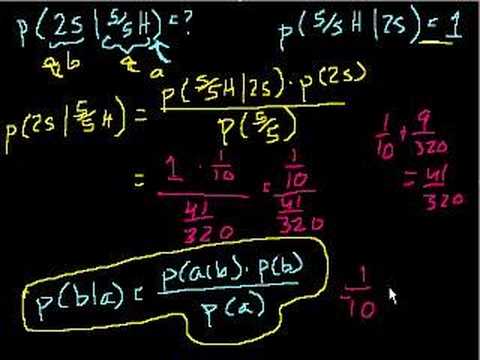 p(2s | 5/5 H) = ?
p(5/5 H | 2s) = 1
b a
p(2s | 5/5 H) = p(5/5 H | 2s) · p(2s) / p(5/5)
= 1 · 1/10 / 41/320 = 1/10 / 41/320
1/10 + 9/320
= 41/320
p(b|a) = p(a|b) · p(b) / p(a)
1/10